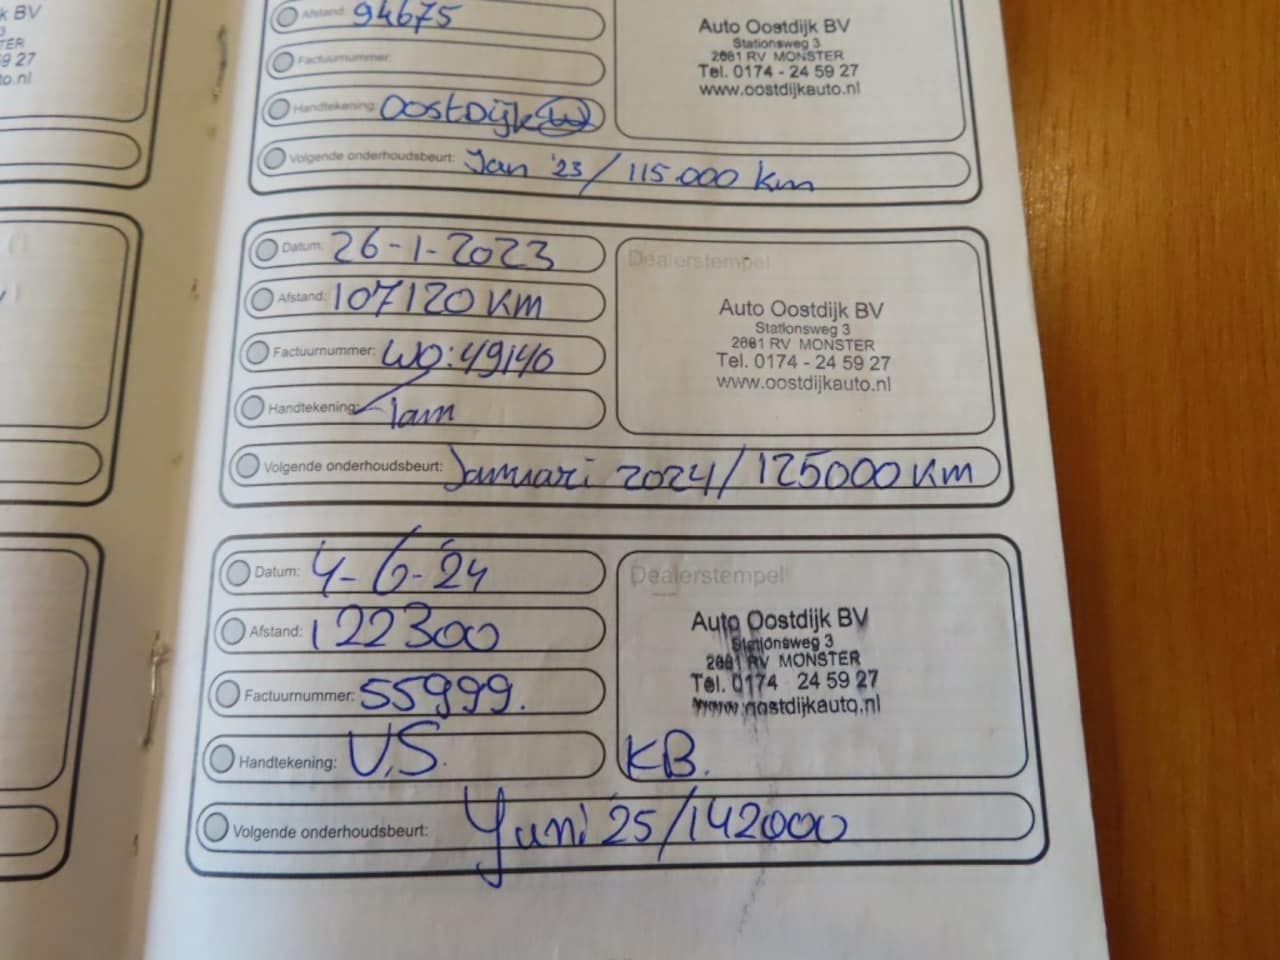 k BV
3
TER
59 27
to.nl
Afstand: 94675
Factuurnummer:
Handtekening: Oostdijk
Volgende onderhoudsbeurt: Jan '23 / 115.000 km
Auto Oostdijk BV
Stationsweg 3
2681 RV MONSTER
Tel. 0174 - 24 59 27
www.oostdijkauto.nl
Datum: 26-1-2023
Afstand: 107120 KM
Factuurnummer: WO:49140
Handtekening:
Volgende onderhoudsbeurt: Januari 2024/125000 KM
Dealerstempel
Auto Oostdijk BV
Stationsweg 3
2681 RV MONSTER
Tel. 0174 - 24 59 27
www.oostdijkauto.nl
Datum: 4-6-'24
Afstand: 122300
Factuurnummer: 55999.
Handtekening: V.S.
Volgende onderhoudsbeurt: Yuni 25/142000
Dealerstempel
Auto Oostdijk BV
Stationsweg 3
2681 RV MONSTER
Tel. 0174 24 59 27
www.oostdijkauto.nl
KB.